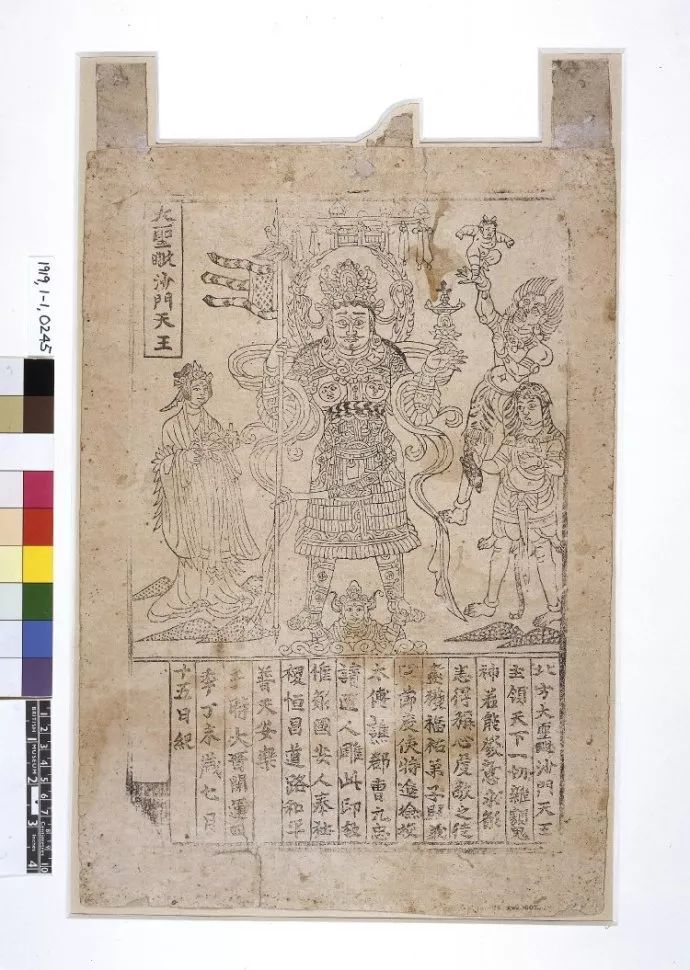 大聖毗沙門天王
北方大聖毗沙門天王
主領天下一切雜類鬼
神若能發意求願
悉得稱心虔敬之徒
盡獲福祐弟子歸義
軍節度使特進檢校
太傅譙郡曹元忠
請匠人雕此印板
惟願國安人泰社
稷恒昌道路和平
普天安樂
于時大晉開運四
年丁未歲七月
十五日紀
1919,1-1,0245
BRITISH MUSEUM
1 2 3 4
Inches
1 2 3 4 5 6 7 8 9 10